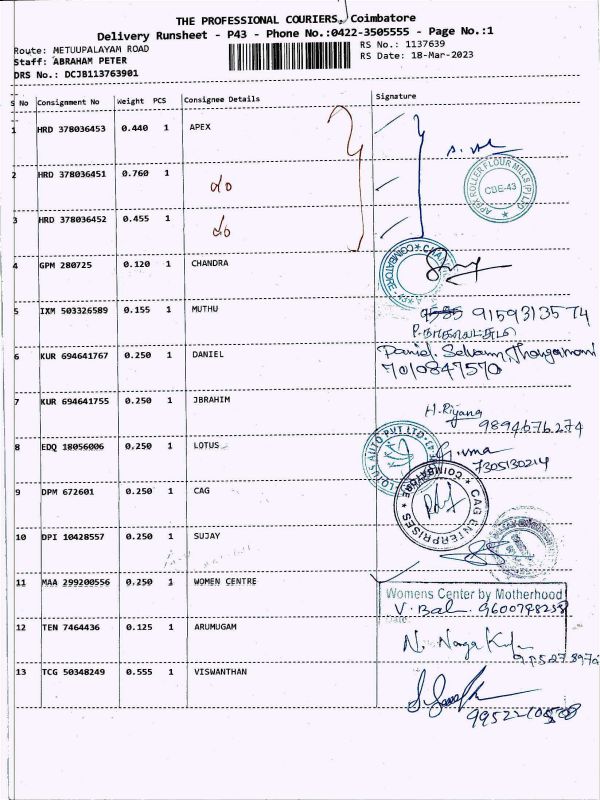 THE PROFESSIONAL COURIERS, Coimbatore
Delivery Runsheet - P43 - Phone No.:0422-3505555 - Page No.:1
Route: METUUPALAYAM ROAD
RS No.: 1137639
Staff: ABRAHAM PETER
RS Date: 18-Mar-2023
DRS No.: DCJB113763901
S No Consignment No Weight PCS Consignee Details Signature
1 HRD 378036453 0.440 1 APEX
2 HRD 378036451 0.760 1 do
APEX ROLLER FLOUR MILLS (P) LTD
CBE-43
3 HRD 378036452 0.455 1 do
4 GPM 280725 0.120 1 CHANDRA
COIMBATORE
5 IXM 503326589 0.155 1 MUTHU
9159313574
6 KUR 694641767 0.250 1 DANIEL Daniel Selvam Thangamani
7010847570
7 KUR 694641755 0.250 1 JBRAHIM H. Riyana
9894676274
8 EDQ 18056006 0.250 1 LOTUS
LOTUS AUTO PVT.LTD
7305130214
9 DPM 672601 0.250 1 CAG
CAG ENTERPRISES COIMBATORE
10 DPI 10428557 0.250 1 SUJAY
11 MAA 299200556 0.250 1 WOMEN CENTRE
Womens Center by Motherhood
V. Bal. 9600748258
Date:
12 TEN 7464436 0.125 1 ARUMUGAM
13 TCG 50348249 0.555 1 VISWANTHAN